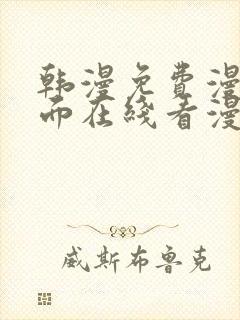 韩漫免费漫
而在线看漫
威斯布鲁克